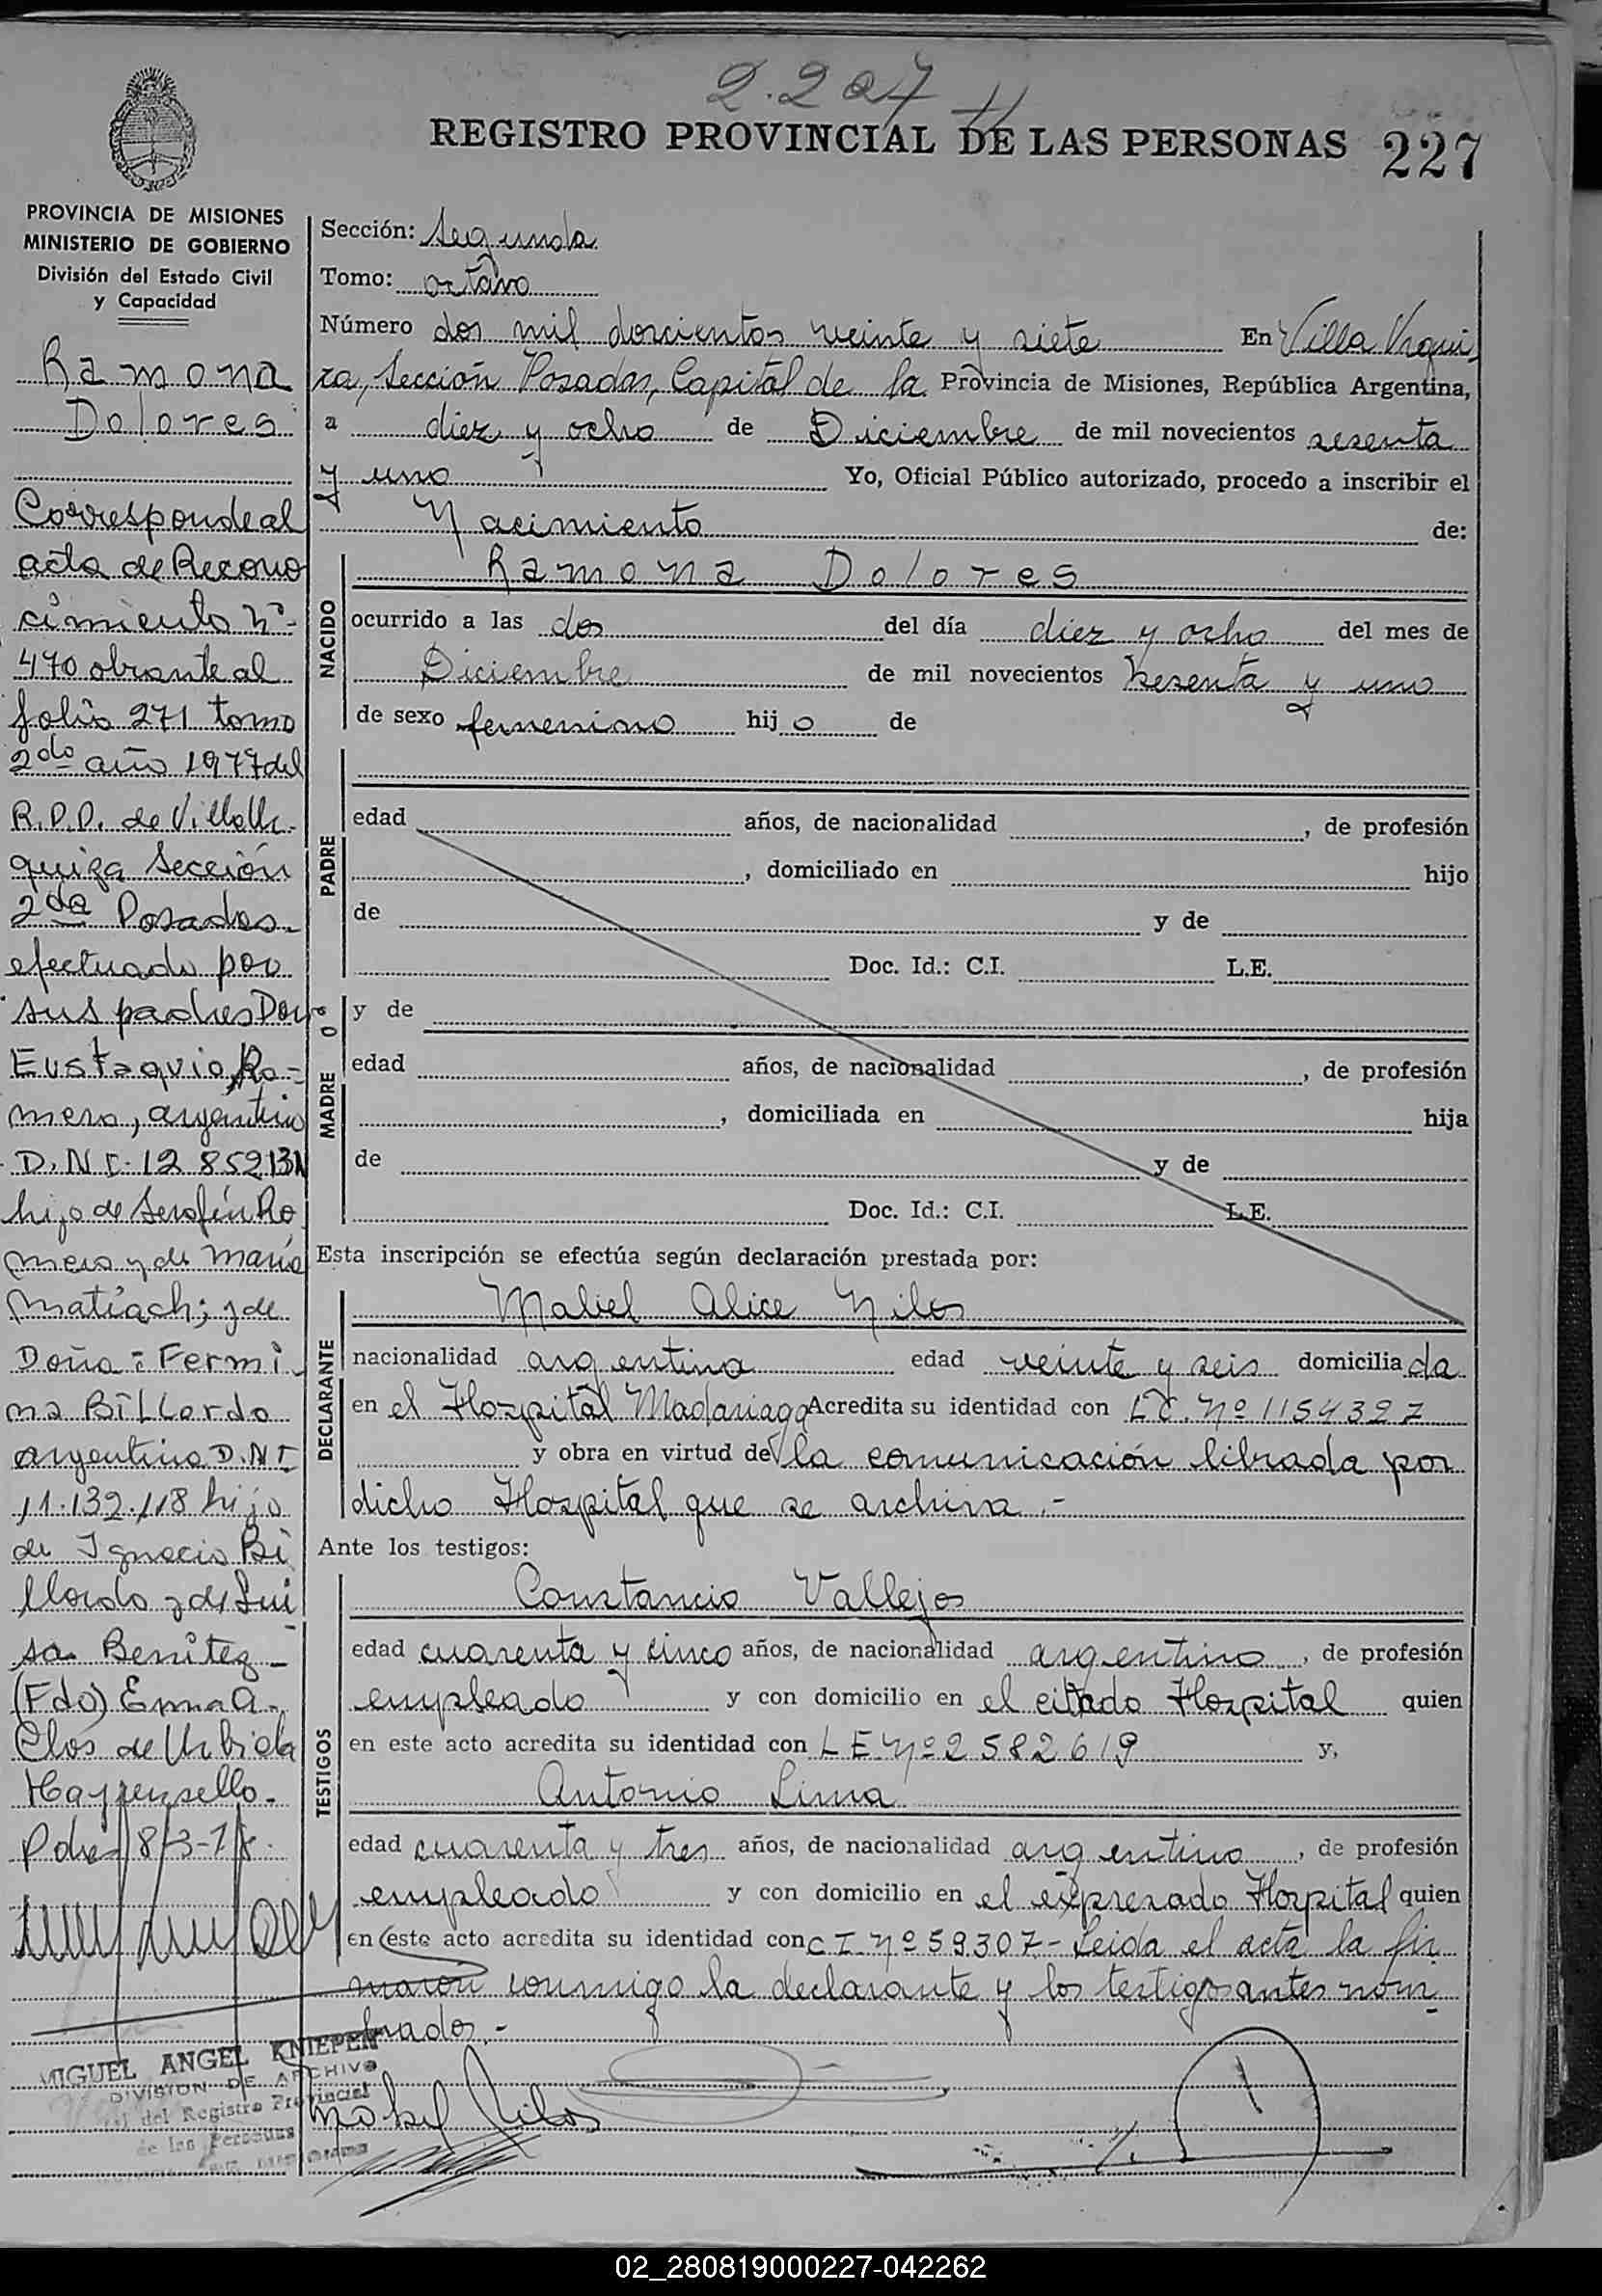 2.207
REGISTRO PROVINCIAL DE LAS PERSONAS 227
PROVINCIA DE MISIONES
MINISTERIO DE GOBIERNO
División del Estado Civil
y Capacidad
Ramona
Dolores
Corresponde al
acta de Recono
cimiento Nº
470 obrante al
folio 271 tomo
2do año 1977 del
R.P.P. de Villa Ur-
quiza Sección
2da Posadas
efectuado por
sus padres Don
Eustaquio Ro-
mero, argentino
D.N.I. 12 852131
hijo de Serafín Ro
mero y de María
Matiach; y de
Doña: Fermi
na Billordo
argentina D.N.I
11.132.118 hija
de Ignacio Bi
llordo y de Lui
sa Benítez -
(Fdo) Emma A.
Clos de Urbieta
Hay un sello.
Pdas 8-3-78.
MIGUEL ANGEL KNIEPEN
DIVISION DE ARCHIVO
del Registro Provincial
de las Personas
Sección: Segunda
Tomo: octavo
Número dos mil doscientos veinte y siete En Villa Urqui
za, Sección Posadas, Capital de la Provincia de Misiones, República Argentina,
a diez y ocho de Diciembre de mil novecientos sesenta
y uno Yo, Oficial Público autorizado, procedo a inscribir el
Nacimiento de:
NACIDO
Ramona Dolores
ocurrido a las dos del día diez y ocho del mes de
Diciembre de mil novecientos sesenta y uno
de sexo femenino hijo de
PADRE
edad años, de nacionalidad , de profesión
, domiciliado en hijo
de y de
Doc. Id.: C.I. L.E.
MADRE O
y de
edad años, de nacionalidad , de profesión
, domiciliada en hija
de y de
Doc. Id.: C.I. L.E.
Esta inscripción se efectúa según declaración prestada por:
DECLARANTE
Mabel Alice Nilos
nacionalidad argentina edad veinte y seis domiciliada
en el Hospital Madariaga Acredita su identidad con L C. Nº 1154327
y obra en virtud de la comunicación librada por
dicho Hospital que se archiva.-
Ante los testigos:
TESTIGOS
Constancio Vallejos
edad cuarenta y cinco años, de nacionalidad argentino , de profesión
empleado y con domicilio en el citado Hospital quien
en este acto acredita su identidad con L E Nº 2582619 y,
Antonio Lima
edad cuarenta y tres años, de nacionalidad argentino , de profesión
empleado y con domicilio en el expresado Hospital quien
en este acto acredita su identidad con C I. Nº 59307- Leida el acta la fir
maron conmigo la declarante y los testigos antes nom
brados.-
Mabel Nilos
02_280819000227-042262